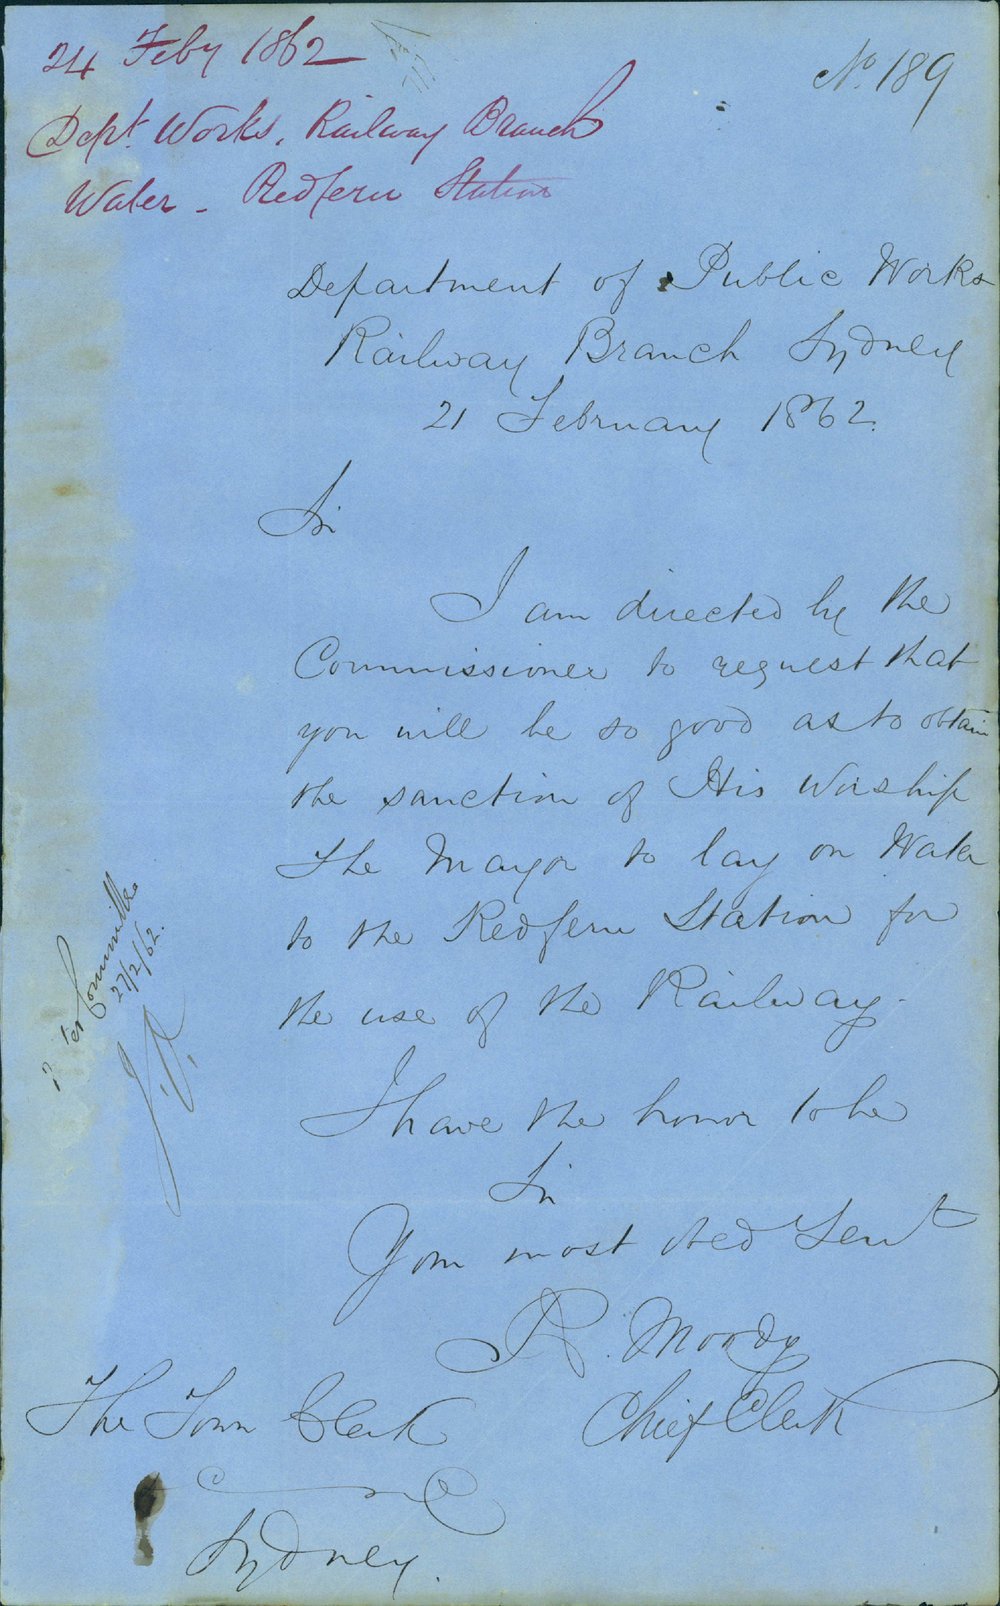 24 Feby 1862
No. 189
Dept. Works. Railway Branch
Water - Redfern Station
Department of Public Works
Railway Branch Sydney
21 February 1862.
Sir
I am directed by the
Commissioner to request that
you will be so good as to obtain
the sanction of His Worship
The Mayor to lay on Water
to the Redfern Station for
the use of the Railway.
I have the honor to be
Sir
Your most Obed Servt
R. Moody
Chief Clerk
The Town Clerk
Sydney.
Committee
27/2/62.